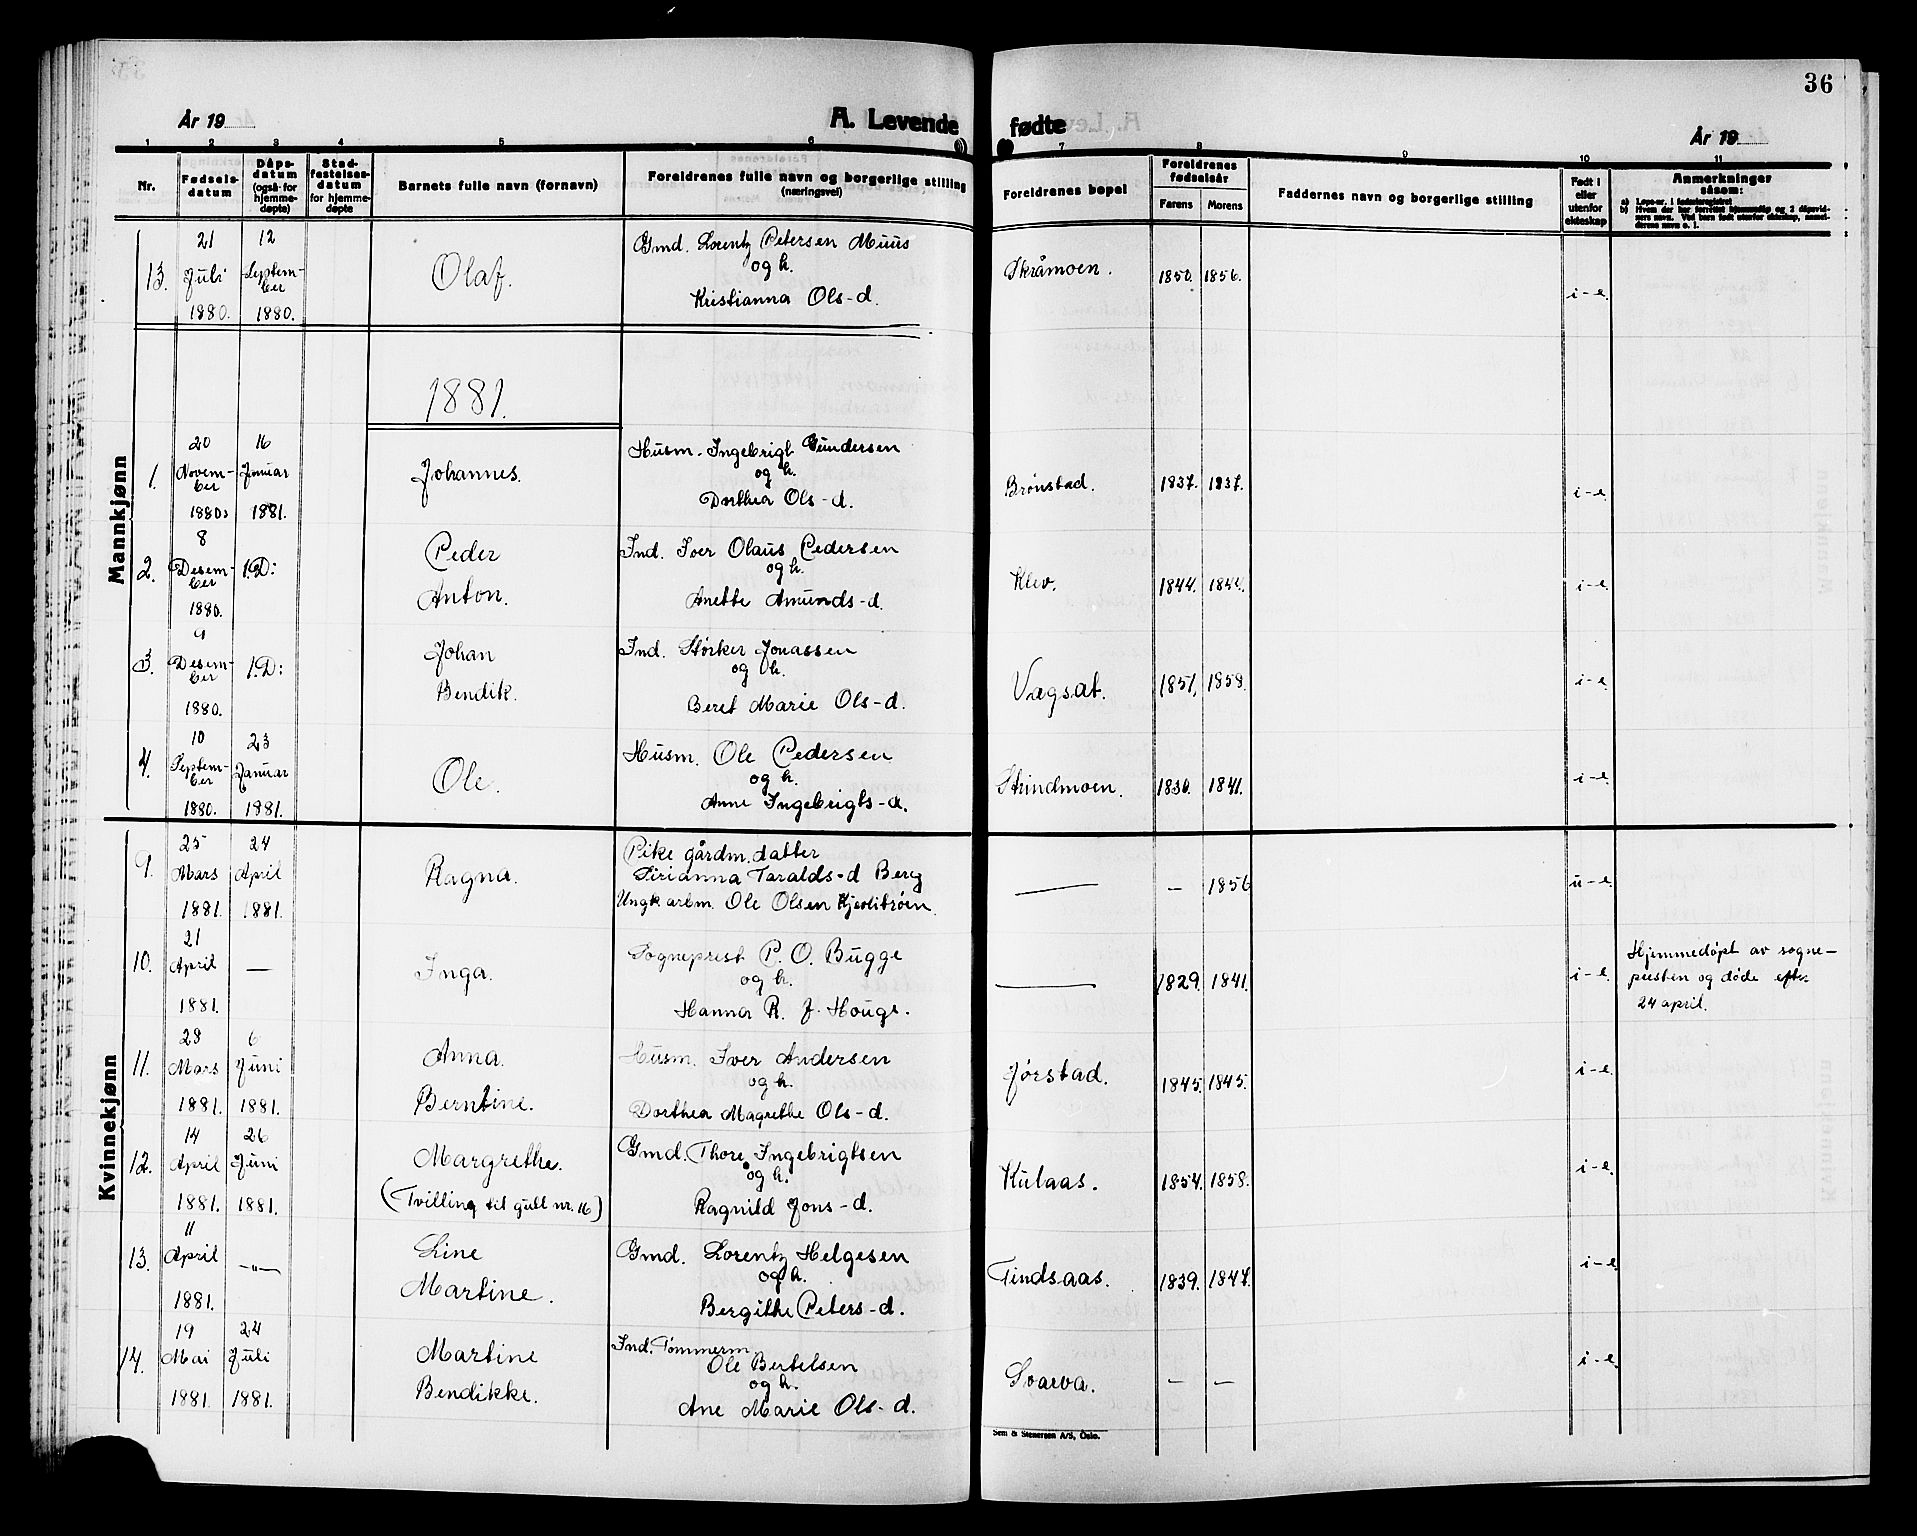 36
År 19
A. Levende fødte
År 19
1 2 3 4 5 6 7 8 9 10 11
Nr.
Fødselsdatum
Dåpsdatum (også for hjemmedøpte)
Stadfestelsesdatum for hjemmedøpte
Barnets fulle navn (fornavn)
Foreldrenes fulle navn og borgerlige stilling (næringsvei)
Foreldrenes bopel
Foreldrenes fødselsår
Farens Morens
Faddernes navn og borgerlige stilling
Født i eller utenfor ekteskap
Anmerkninger såsom:
a) Løpe-nr. i fødselsregistret
Mannkjønn
13. 21 Juli 1880. 12 September 1880. Olaf. Gmd. Lorentz Petersen Muus og h. Kristianna Ols-d. Skråmoen. 1850. 1856. i-e.
1881.
1. 20 November 1880. 16 Januar 1881. Johannes. Husm. Ingebrigt Gundersen og h. Dorthea Ols-d. Brønstad. 1837. 1837. i-e.
2. 8 Desember 1880. 1.D: Peder Anton. Ind. Iver Olaus Pedersen og h. Anette Amunds-d. Klev. 1844. 1844. i-e.
3. 9 Desember 1880. 1.D: Johan Bendik. Ind. Størker Jonassen og h. Beret Marie Ols-d. Vægsat. 1851. 1858. i-e.
4. 10 September 1880. 23 Januar 1881. Ole. Husm. Ole Pedersen og h. Anne Ingebrigts-d. Strindmoen. 1830. 1841. i-e.
Kvinnekjønn
9. 25 Mars 1881. 24 April 1881. Ragna. Pike gårdm. datter Sirianna Taralds-d Berg Ungk arbm. Ole Olsen Kjesbubrøen. — — 1856 u-e.
10. 21 April 1881. — Inga. Sogneprest P. O. Bugge og h. Hanna R. J. Houge. — 1829. 1841. i-e. Hjemmedøpt av sognepresten og døde efter 24 april.
11. 28 Mars 1881. 6 Juni 1881. Anna Berntine. Husm. Iver Andersen og h. Dorthea Magrethe Ols-d. Jørstad. 1845. 1845. i-e.
12. 14 April 1881. 26 Juni 1881. Margrethe. (Tvilling til gutt nr. 16) Gmd. Thore Ingebrigtsen og h. Ragnild Jons-d. Kulaas. 1854. 1858. i-e.
13. 11 April 1881. —"— Line Martine. Gmd. Lorentz Helgesen og h. Bergithe Peters-d. Tindsaas. 1839. 1847. i-e.
14. 19 Mai 1881. 24 Juli 1881. Martine Bendikke. Ind. Tømmerm Ole Bertelsen og h. Ane Marie Ols-d. Svarva. — — i-e.
Sem & Stenersen A/S, Oslo.